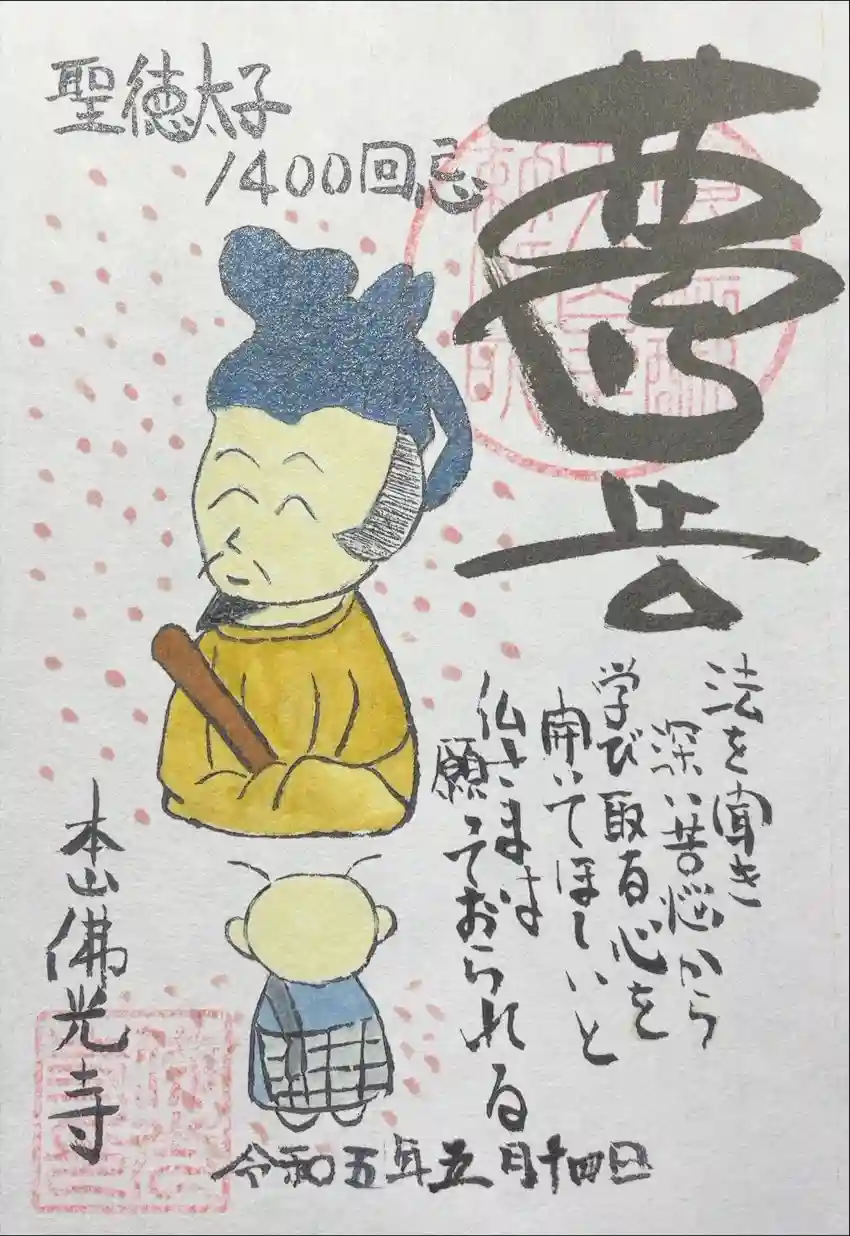 聖徳太子
1400回忌
夢告
法を聞き
深い苦悩から
学び取る心を
開いてほしいと
仏さまは
願っておられる
本山佛光寺
令和五年五月十四日